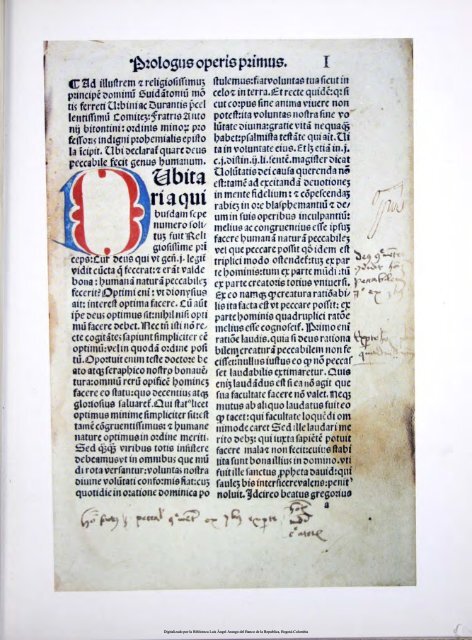 Prologus operis primus. I
¶ Ad illustrem ⁊ religiosissimuȝ
principē dominū Guidātoniū mō
tis ferreti Urbini ac Durantis p̄cel
lentissimū Comitez: fratris Anto
nij bitontini: ordinis minoꝝ pro
fessoris indigni prohemialis episto
la īcipit. Ubi declarat̄ quare deus
peccabile fecit genus humanum.
Dubita
ri a qui
busdam sepe
numero soli
tuȝ fuit Reli
giosissime pri
ceps: Cur deus qui vt gen̄. j. legit̄
vidit cūcta q̄ fecerat: ⁊ erāt valde
bona: humanā naturā peccabilez
fecerit? Optimi eni: vt dionysius
ait: interest optima facere. Cū aūt
ip̄e deus optimus sit: nihil nisi opti
mū facere debet. Nec tū isti nō re
cte cogitātes sapiunt simpliciter eē
optimū: vel in quodā ordine posi
tū. Oportuit enim teste doctore be
ato atqȝ seraphico nostro bonauē
tura: omniū rerū opifice hominez
facere eo statu: quo decentius atqȝ
gloriosius saluaret̄. Qui stat⁹ licet
optimus minime simpliciter sit: est
tamē cōgruentissimus: ⁊ humane
nature optimus in ordine meriti.
Sed q̄qȝ viribus totis insistere
debeamus vt in omnibus que mū
di rota versantur: voluntas nostra
diuine volūtati conformis fiat: cuȝ
quotidie in oratione dominica po
stulemus: fiat voluntas tua sicut in
celo ⁊ in terra. Et recte quidē: q̄ si
cut corpus sine anima viuere non
potest: ita voluntas nostra sine vo
lūtate diuina: gratie vitā ne quaq̄
habet: psalmista testāte qui ait. Ui
ta in voluntate eius. Et lȝ etiā in. j.
c. j. distin. ij. li. sentē. magister dicat
Uolūtatis dei causa querenda nō
est: tamē ad excitandā deuotionez
in mente fidelium: ⁊ cōpescendaȝ
rabiez in ore blasphemantiū ⁊ de
um in suis operibus inculpantiū:
melius ac congruentius esse ipsuȝ
facere humanā naturā peccabilez
vel que peccare possit qȝ idem est
triplici modo ostendet̄: ex par
te hominis: tum ex parte mūdi: tū
ex parte creatoris totius vniuersi.
Ex eo namqȝ q̄ creatura rationabi
lis ita facta est vt peccare possit: ex
parte hominis quadruplici ratōe
melius esse cognoscet̄. Primo enī
ratiōe laudis. quia si deus rationa
bilem creaturā peccabilem non fe
cisset: nullus iustus eo q̄ nō peccas
set laudabilis extimaretur. Quis
enīȝ laudādus est si ea nō agit que
sua facultate facere nō valet. Neqȝ
mutus ab aliquo laudatus fuit eo
q̄ tacet: qui facultate loquēdi om
nimode caret Sed ille laudari me
rito debȝ: qui iuxta sapiētē potuit
facere mala ⁊ non fecit: cuius stabi
lita sunt bona illius in domino. vti
fuit ille sanctus p̄pheta dauid: qui
saulez bis interficere valens: penit⁹
noluit. Idcirco beatus gregorius
a
Digitalizado por la Biblioteca Luis Ángel Arango del Banco de la República, Bogotá-Colombia